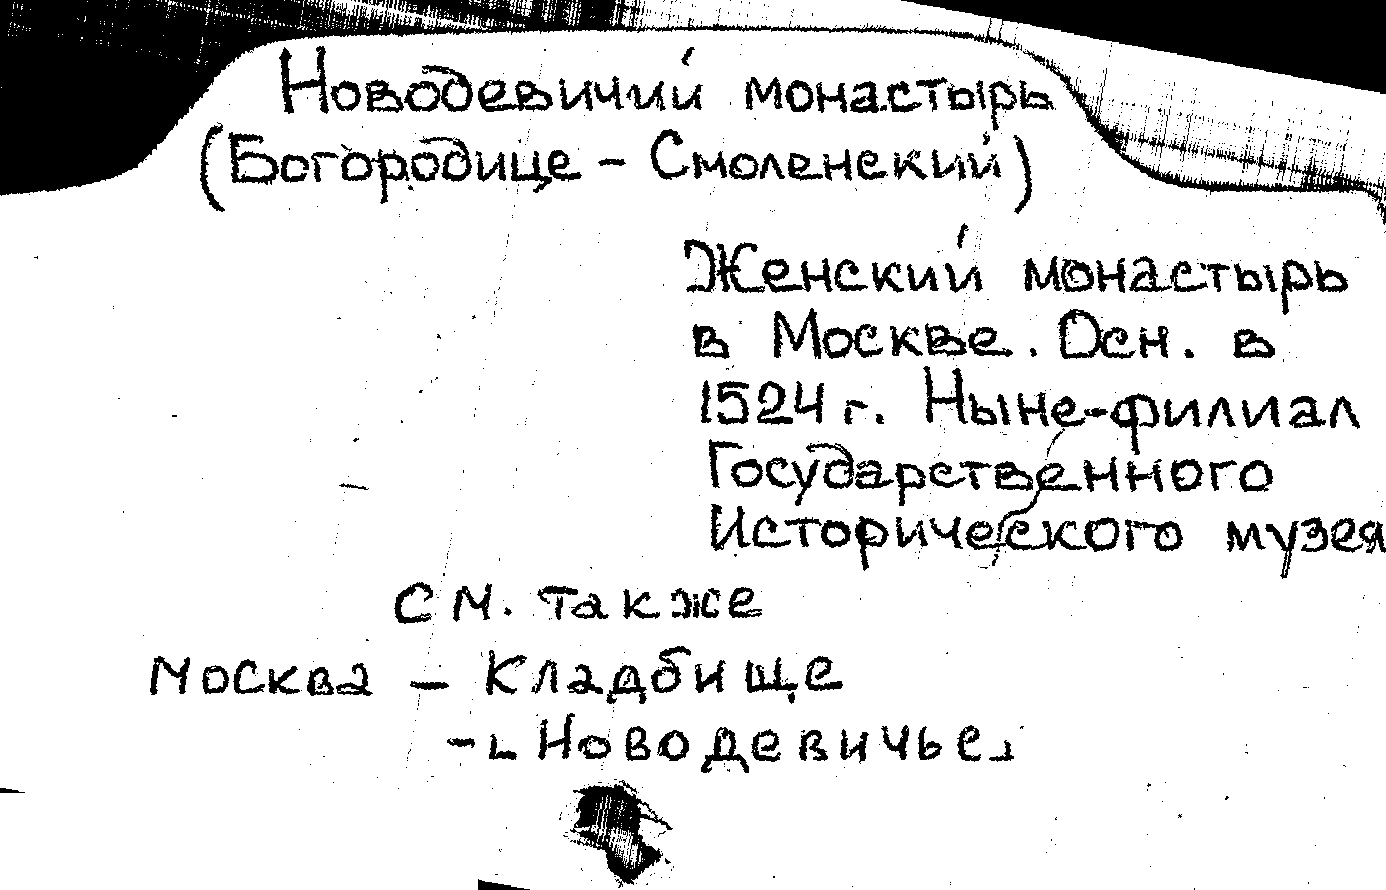 Новодевичий монастырь
(Богородице - Смоленский)
Женский монастырь
в Москве. Осн. в
1524 г. Ныне-филиал
Государственного
Исторического музея
см. также
Москва - Кладбище
-⌞Новодевичье⌟